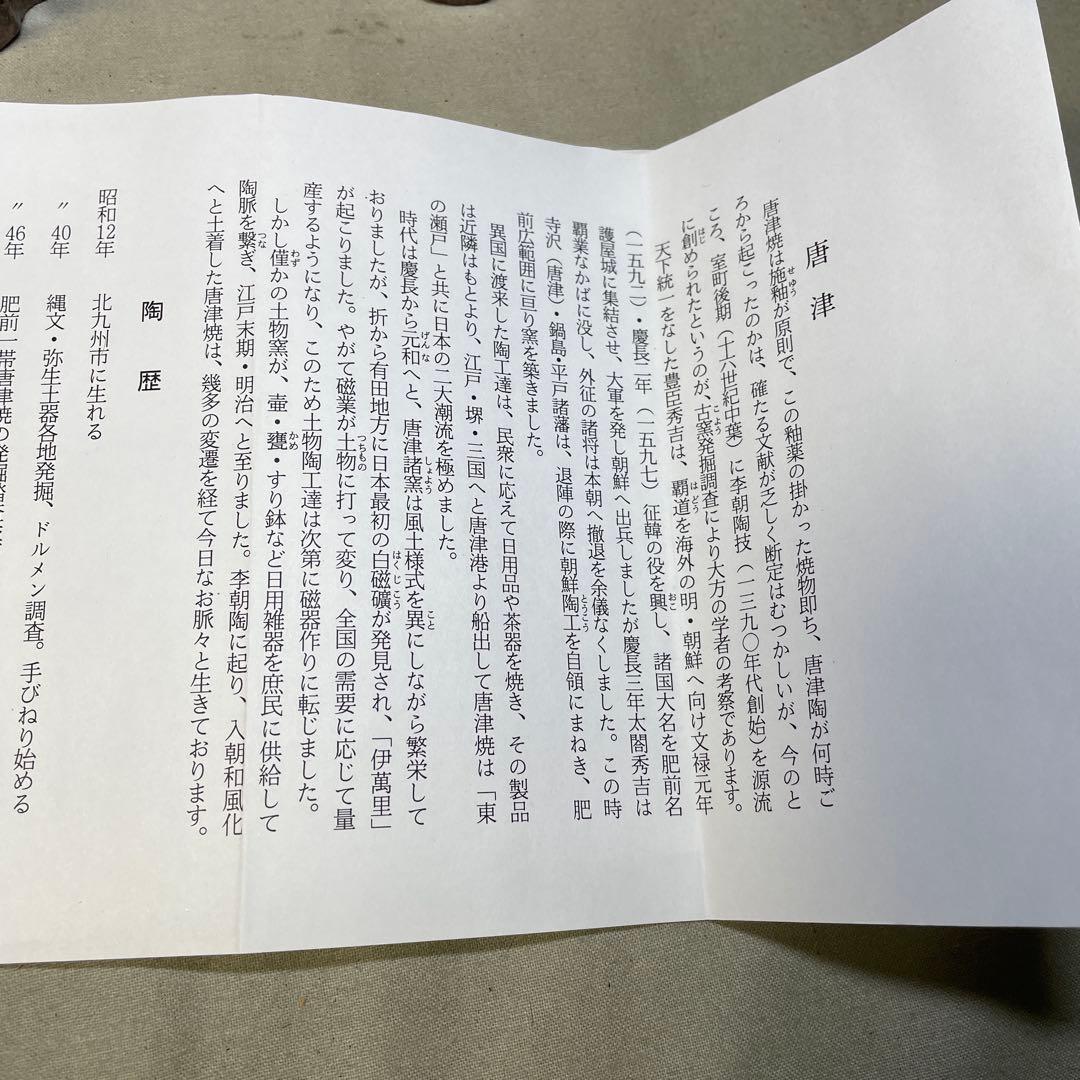 唐津
唐津焼は施釉が原則で、この釉薬の掛かった焼物即ち、唐津陶が何時ご
ろから起こったのかは、確たる文献が乏しく断定はむつかしいが、今のと
ころ、室町後期（十六世紀中葉）に李朝陶技（一三九〇年代創始）を源流
に創められたというのが、古窯発掘調査により大方の学者の考察であります。
天下統一をなした豊臣秀吉は、覇道を海外の明・朝鮮へ向け文禄元年
（一五九二）・慶長二年（一五九七）征韓の役を興し、諸国大名を肥前名
護屋城に集結させ、大軍を発し朝鮮へ出兵しましたが慶長三年太閤秀吉は
覇業なかばに没し、外征の諸将は本朝へ撤退を余儀なくしました。この時
寺沢（唐津）・鍋島・平戸諸藩は、退陣の際に朝鮮陶工を自領にまねき、肥
前広範囲に亘り窯を築きました。
異国に渡来した陶工達は、民衆に応えて日用品や茶器を焼き、その製品
は近隣はもとより、江戸・堺・三国へと唐津港より船出して唐津焼は「東
の瀬戸」と共に日本の二大潮流を極めました。
時代は慶長から元和へと、唐津諸窯は風土様式を異にしながら繁栄して
おりましたが、折から有田地方に日本最初の白磁礦が発見され、「伊萬里」
が起こりました。やがて磁業が土物に打って変り、全国の需要に応じて量
産するようになり、このため土物陶工達は次第に磁器作りに転じました。
しかし僅かの土物窯が、壷・甕・すり鉢など日用雑器を庶民に供給して
陶脈を繋ぎ、江戸末期・明治へと至りました。李朝陶に起り、入朝和風化
へと土着した唐津焼は、幾多の変遷を経て今日なお脈々と生きております。
陶歴
昭和12年 北九州市に生れる
〃 40年 縄文・弥生土器各地発掘、ドルメン調査。手びねり始める
〃 46年 肥前一帯唐津焼の発掘